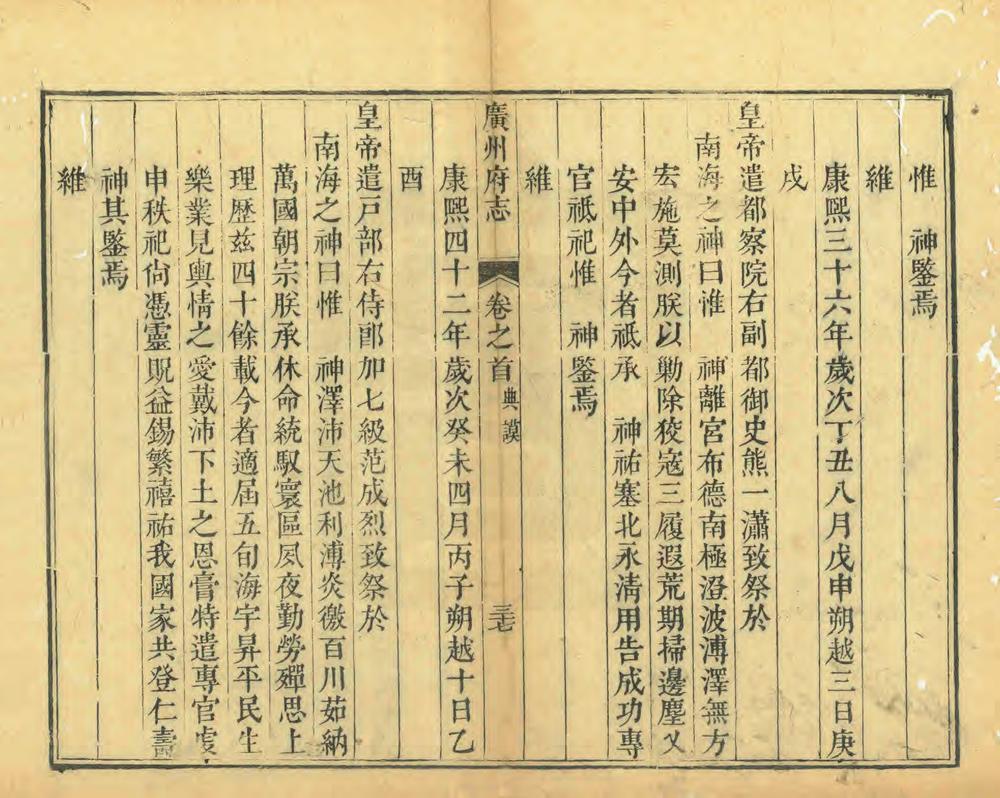 惟　神鑒焉
維
康熙三十六年歲次丁丑八月戊申朔越三日庚
戌
皇帝遣都察院右副都御史熊一瀟致祭於
南海之神曰惟　神離宮布德南極澄波溥澤無方
宏施莫測朕以勦除狡寇三履遐荒期掃邊塵乂
安中外今者祇承　神祐塞北永淸用告成功專
官祗祀惟　神鑒焉
維
廣州府志　卷之首　典謨　三七
康熙四十二年歲次癸未四月丙子朔越十日乙
酉
皇帝遣戸部右侍郎加七級范成烈致祭於
南海之神曰惟　神澤沛天池利溥炎徼百川茹納
萬國朝宗朕承休命統馭寰區夙夜勤勞殫思上
理歷兹四十餘載今者適屆五旬海宇昇平民生
樂業見輿情之愛戴沛下土之恩膏特遣專官虔
申秩祀尙憑靈貺益錫繁禧祐我國家共登仁壽
神其鑒焉
維